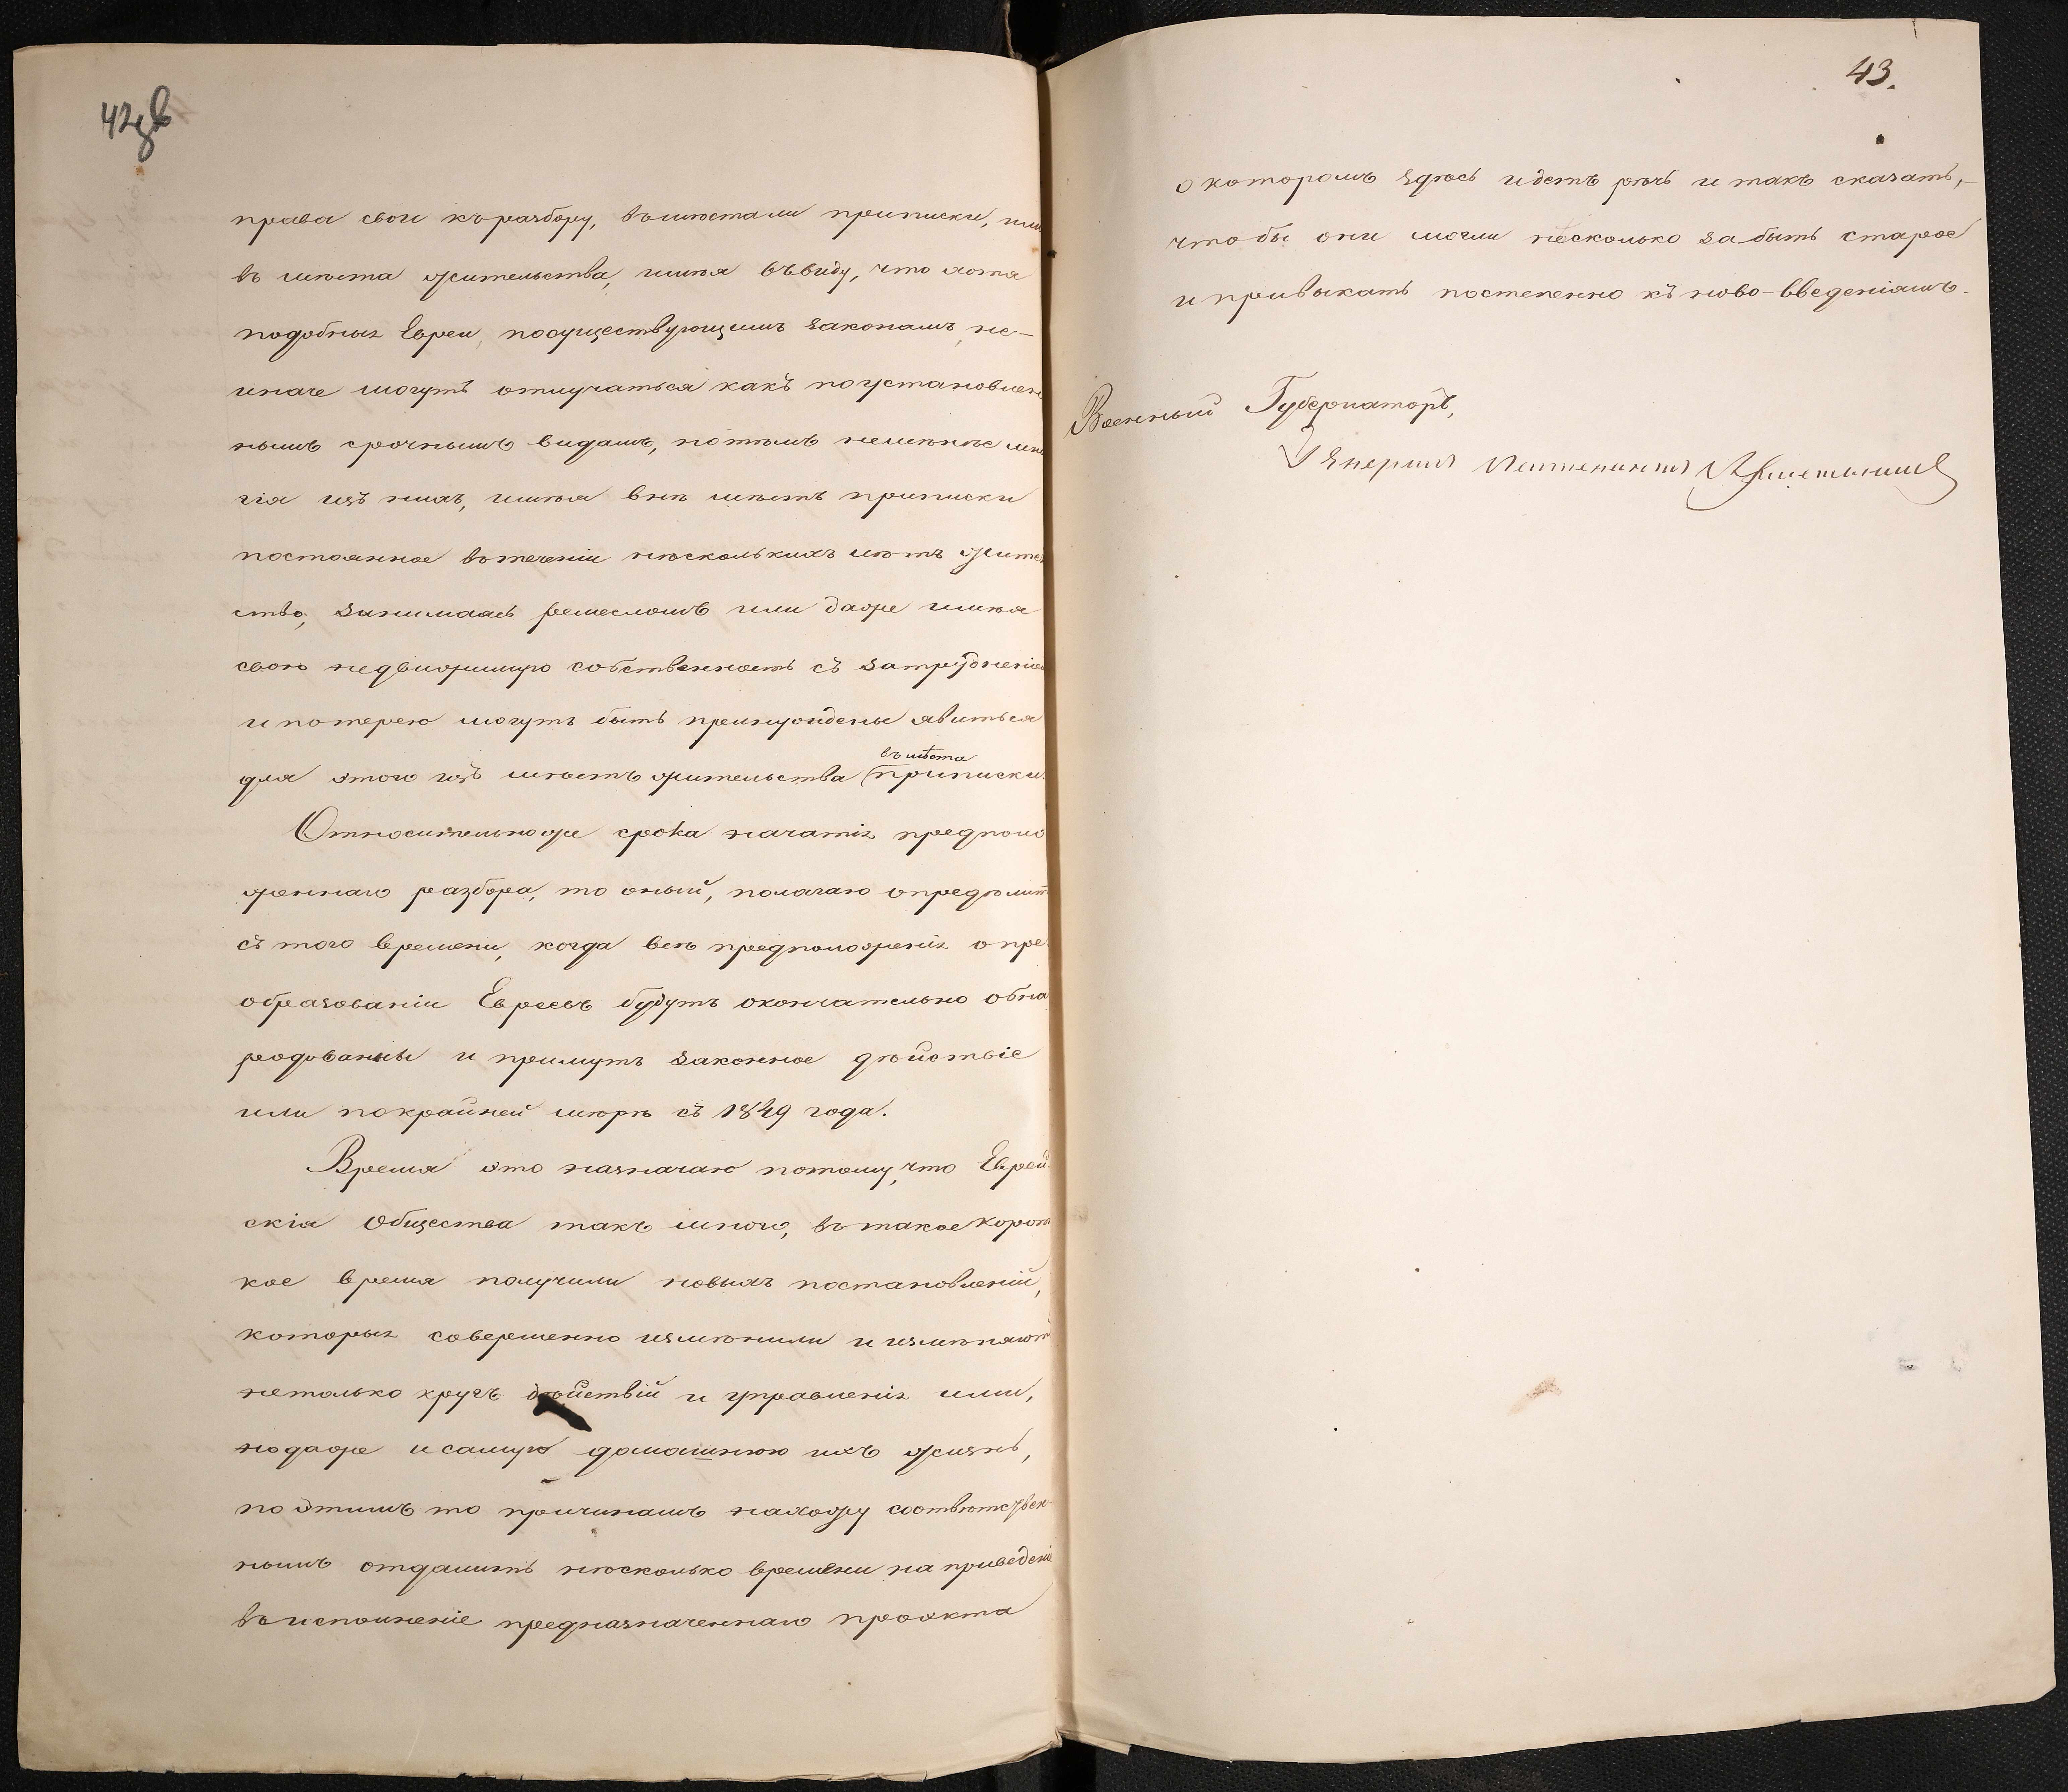 42об
права свои къ разбору, въ мѣстали приписки, или
въ мѣста жительства, имѣя въ виду, что хотя
подобныя Евреи, по существующимъ законамъ, не-
иначе могутъ отлучаться какъ по установлен
нымъ срочнымъ видамъ, но тѣмъ неменѣе мно
гія изъ нихъ, имѣя внѣ мѣстъ приписки
постоянное въ теченіи нѣсколькихъ лѣтъ жител
ство, занимаясь ремесломъ или даже имѣя
свою недвижимую собственность съ затрудненіем
и потерею могутъ быть принуждены явиться
въ мѣста
для этого изъ мѣстъ жительства приписки.
Относительно же срока начатія предполо
женнаго разбора, то оный, полагаю опредѣлит
съ того времени, когда всѣ предположенія о пре
образованіи Евреевъ будутъ окончательно обна
родованы и примутъ законное дѣйствіе
или покрайней мѣрѣ съ 1849 года.
Время это назначаю потому, что Еврей
скія Общества такъ много, въ такое корот
кое время получили новыхъ постановленій,
которыя совершенно измѣнили и измѣняютъ
нетолько кругъ дѣйствій и управленія ими,
но даже и самую домашнюю ихъ жизнь,
по этимъ то причинамъ нахожу соотвѣтствен-
нымъ отдалить нѣсколько времени на приведеніе
въ исполненіе предназначеннаго проэкта
43.
о которомъ здѣсь идетъ рѣчь и такъ сказать,
чтобы они могли нѣсколько забыть старое
и привыкать постепенно къ ново-введеніямъ.
Военный Губернаторъ,
Генералъ Лейтенантъ